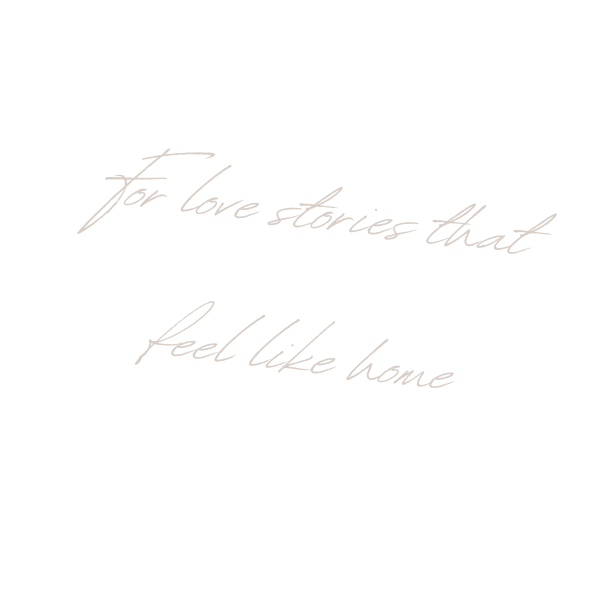 For love stories that
feel like home